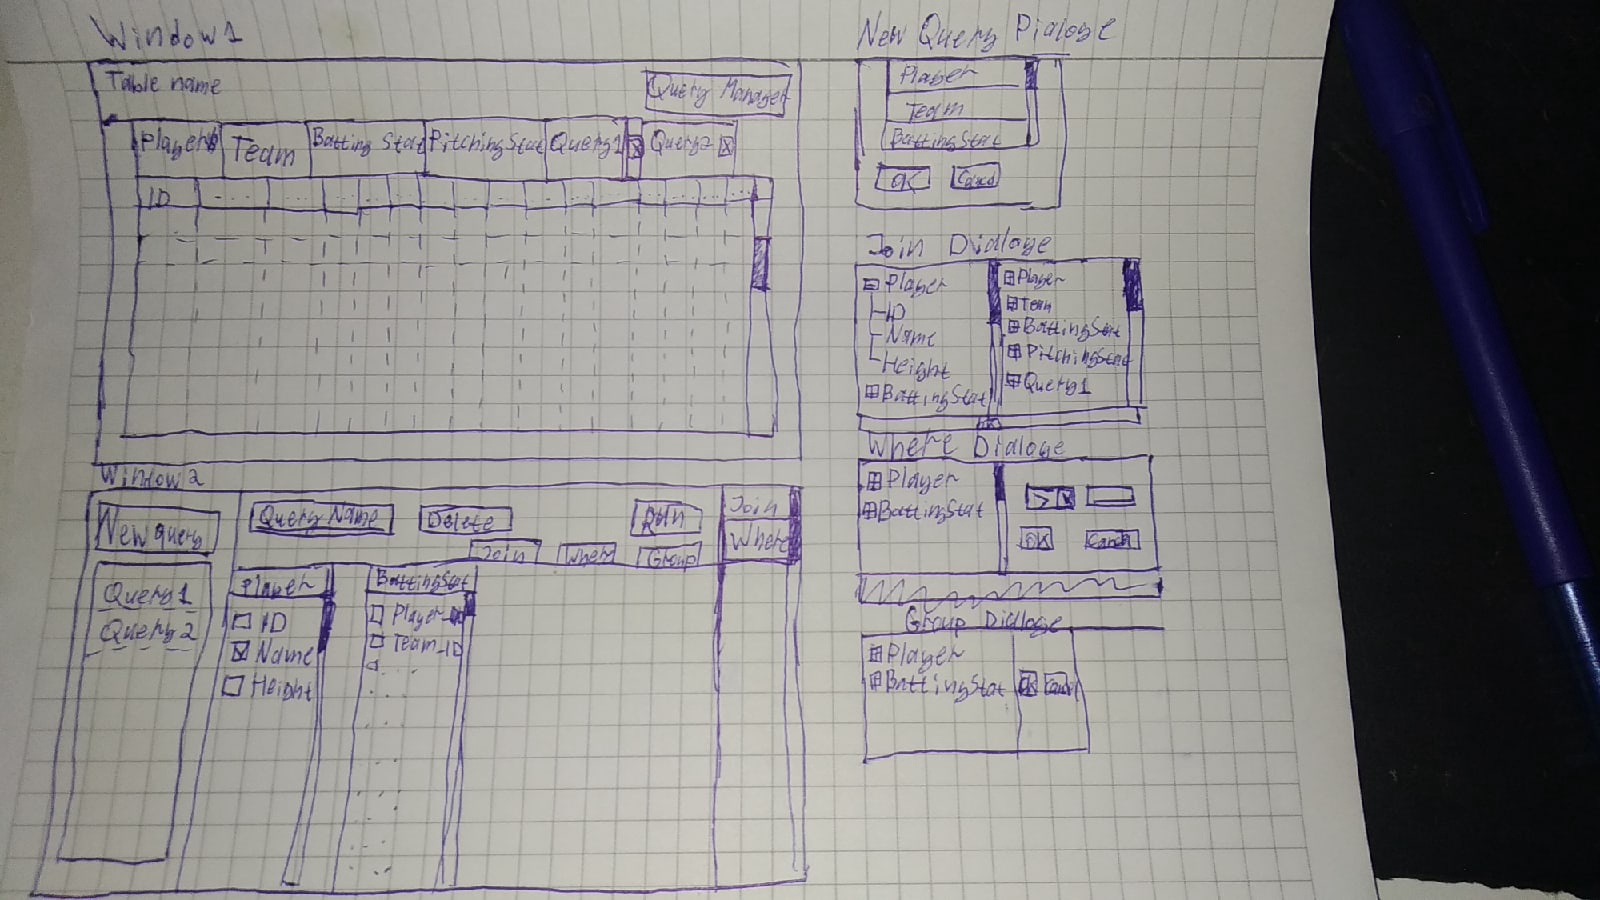 Window1
Table name
Query Manager
Player
Team
Batting Stat
PitchingStat
Query1
Query2
ID
Window2
New query
Query1
Query2
Query Name
Delete
Join
Where
Group
Join
Where
Player
ID
Name
Height
BattingStat
Player_ID
Team_ID
New Query Dialoge
Player
Team
BattingStat
OK
Cancel
Join Dialoge
Player
ID
Name
Height
BattingStat
Player
Team
BattingStat
PitchingStat
Query1
Where Dialoge
Player
BattingStat
>
OK
Cancel
Group Dialoge
Player
BattingStat
OK
Cancel